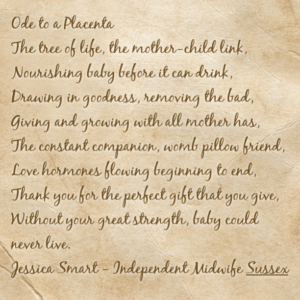 Ode to a Placenta
The tree of life, the mother-child link,
Nourishing baby before it can drink,
Drawing in goodness, removing the bad,
Giving and growing with all mother has,
The constant companion, womb pillow friend,
Love hormones flowing beginning to end,
Thank you for the perfect gift that you give,
Without your great strength, baby could
never live.
Jessica Smart - Independent Midwife Sussex